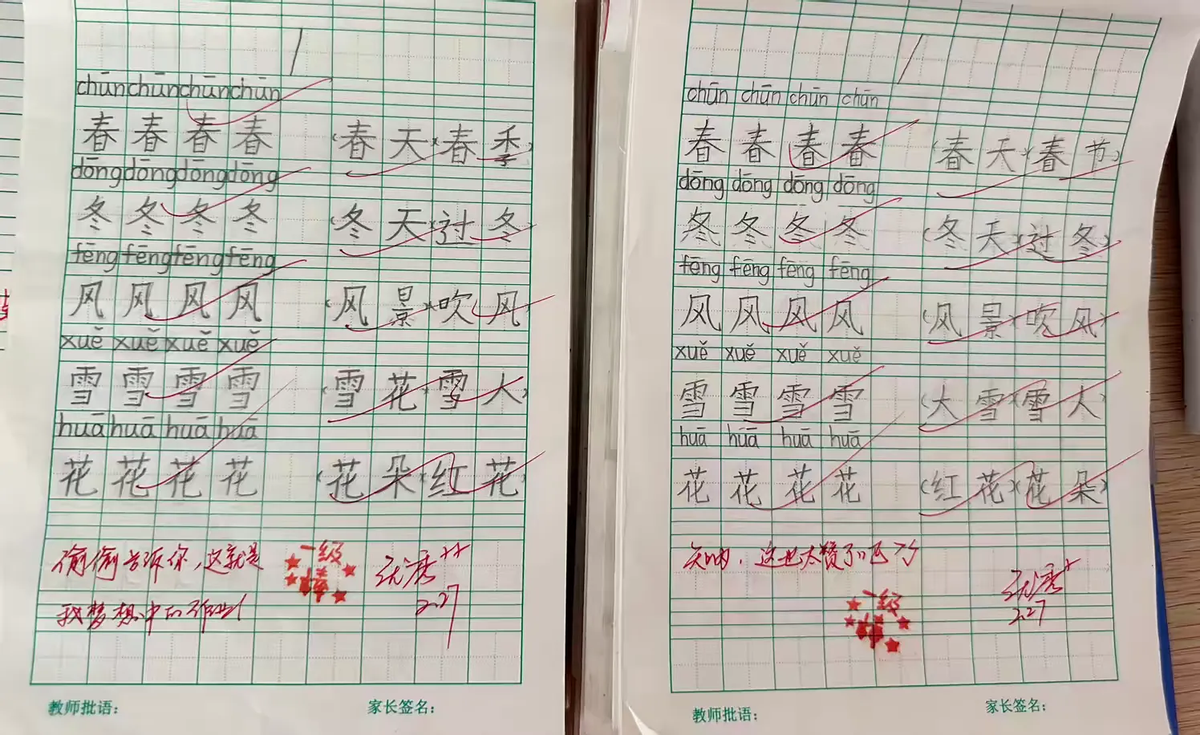 1
chūn chūn chūn chūn
春 春 春 春 (春 天)(春 季)
dōng dōng dōng dōng
冬 冬 冬 冬 (冬 天)(过 冬)
fēng fēng fēng fēng
风 风 风 风 (风 景)(吹 风)
xuě xuě xuě xuě
雪 雪 雪 雪 (雪 花)(雪 人)
huā huā huā huā
花 花 花 花 (花 朵)(红 花)
偷偷告诉你，这就是
我梦想中的作业！
一级棒
优秀++
2.27
教师批语： 家长签名：
1
chūn chūn chūn chūn
春 春 春 春 (春 天)(春 节)
dōng dōng dōng dōng
冬 冬 冬 冬 (冬 天)(过 冬)
fēng fēng fēng fēng
风 风 风 风 (风 景)(吹 风)
xuě xuě xuě xuě
雪 雪 雪 雪 (大 雪)(雪 人)
huā huā huā huā
花 花 花 花 (红 花)(花 朵)
天呐，这也太赞了吧
优秀+
2.27
一级棒
教师批语： 家长签名：